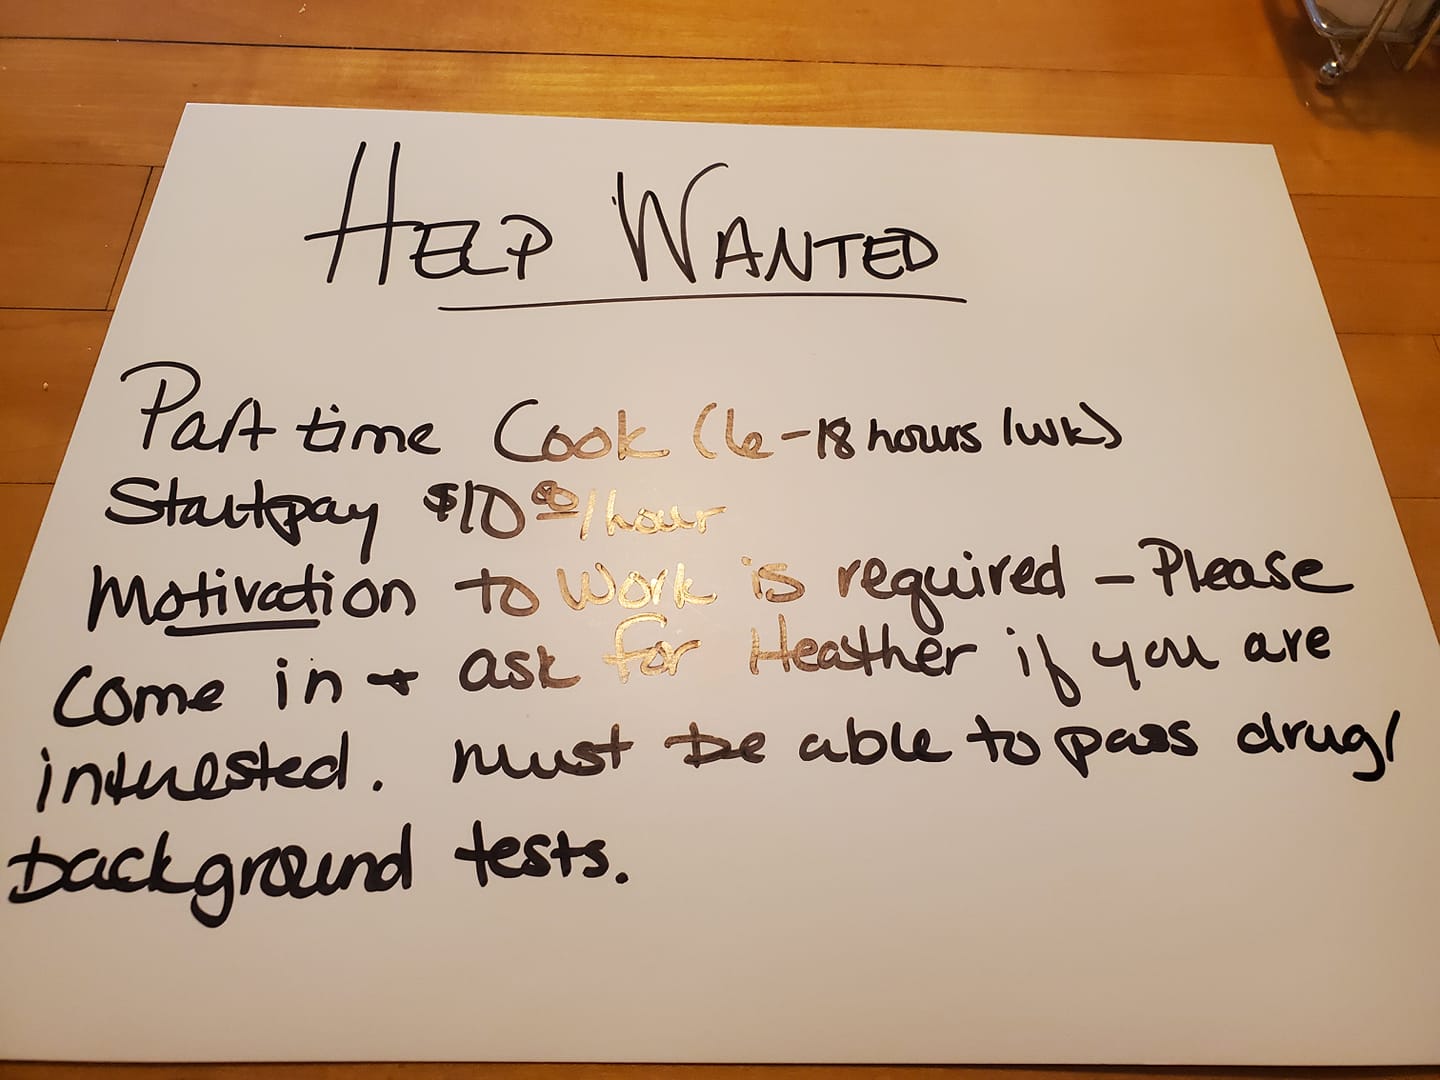 HELP WANTED
Part time Cook (6-18 hours/wk)
Start pay $10.00/hour
Motivation to work is required – Please
come in + ask for Heather if you are
interested. must be able to pass drug/
background tests.